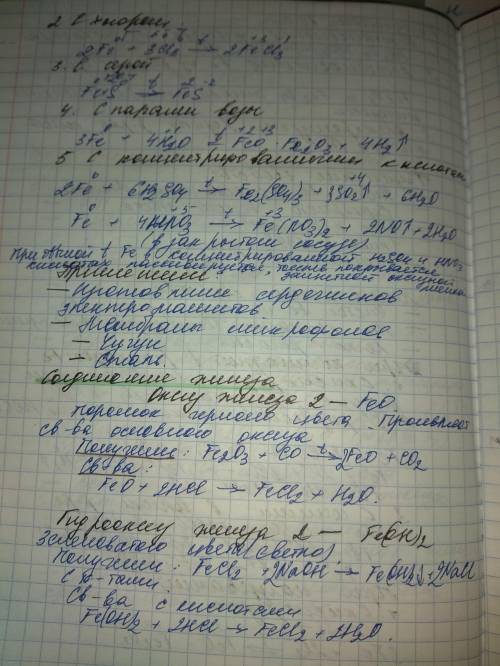 2. С хлором
2Fe⁰ + 3Cl₂ →t 2FeCl₃
3. С серой
Fe + S →t FeS
4. С парами воды
3Fe⁰ + 4H₂O →t FeO · Fe₂O₃ + 4H₂↑
5. С концентрированными кислотами
2Fe⁰ + 6H₂SO₄ →t Fe₂(SO₄)₃ + 3SO₂↑ + 6H₂O
Fe⁰ + 4HNO₃ → Fe(NO₃)₂ + 2NO↑ + 2H₂O
(в закрытом сосуде)
При t Fe с концентрированной H₂SO₄ и HNO₃
кислотами покрывается
защитной оксидной пленкой
Применение:
— Изготовление сердечников
электромагнитов
— Мембраны микрофонов
— Чугун
— Сталь.
Соединение железа
Оксид железа 2 — FeO.
Порошок черного цвета. Проявляет
св-ва основного оксида
Получение: Fe₂O₃ + CO →t 2FeO + CO₂
Св-ва:
FeO + 2HCl → FeCl₂ + H₂O.
Гидрооксид железа 2 — Fe(OH)₂
Зеленоватого цвета (светло)
Получение: FeCl₂ + 2NaOH → Fe(OH)₂↓ + 2NaCl
С к-тами:
Св-ва с кислотами
Fe(OH)₂ + 2HCl → FeCl₂ + 2H₂O.